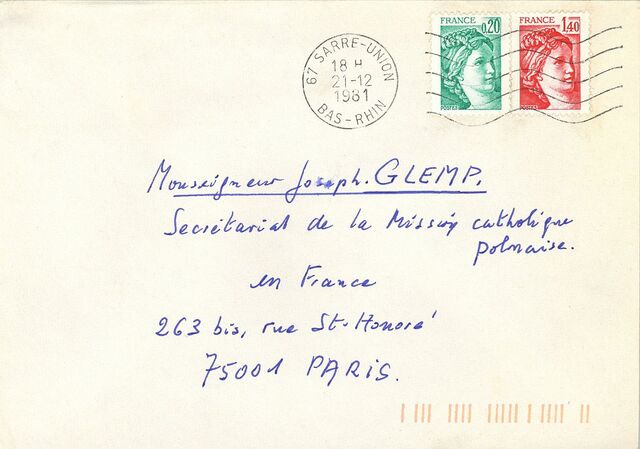 FRANCE 0,20
POSTES
FRANCE 1,40
POSTES
67 SARRE-UNION
18 H
21-12
1981
BAS-RHIN
Monseigneur Joseph. GLEMP.
Secrétariat de la Mission catholique
polonaise.
en France
263 bis, rue St-Honoré
75001 PARIS.